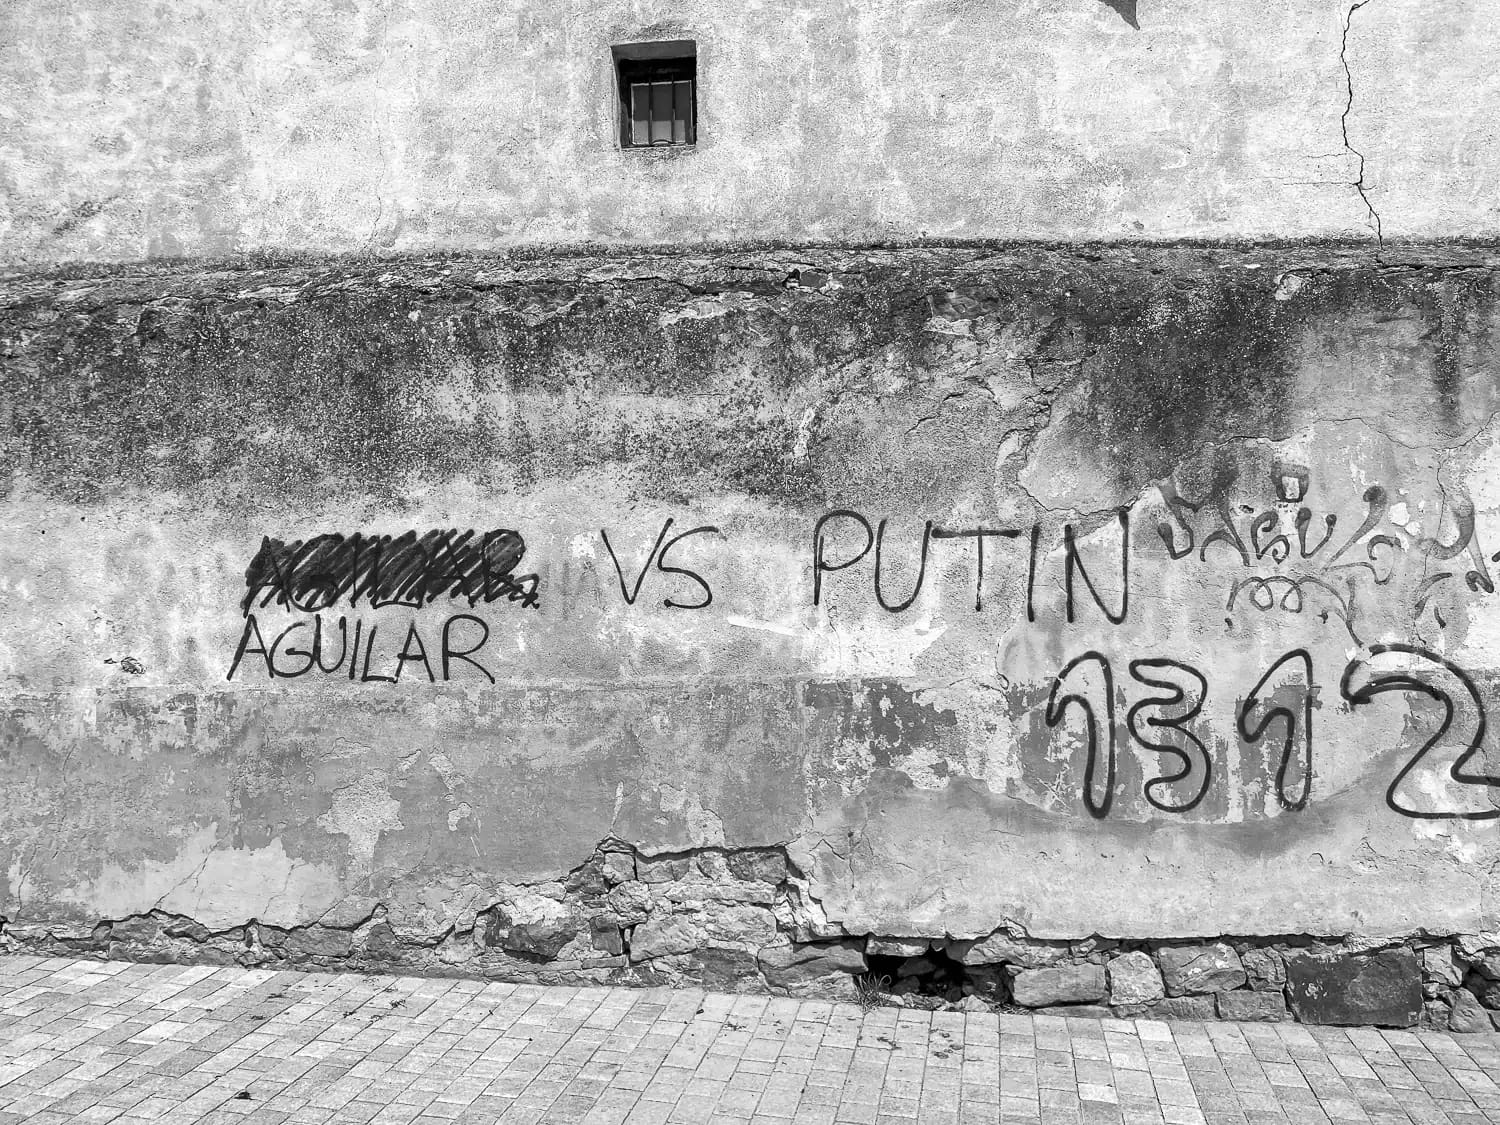 AGUILAR VS PUTIN
AGUILAR
1312